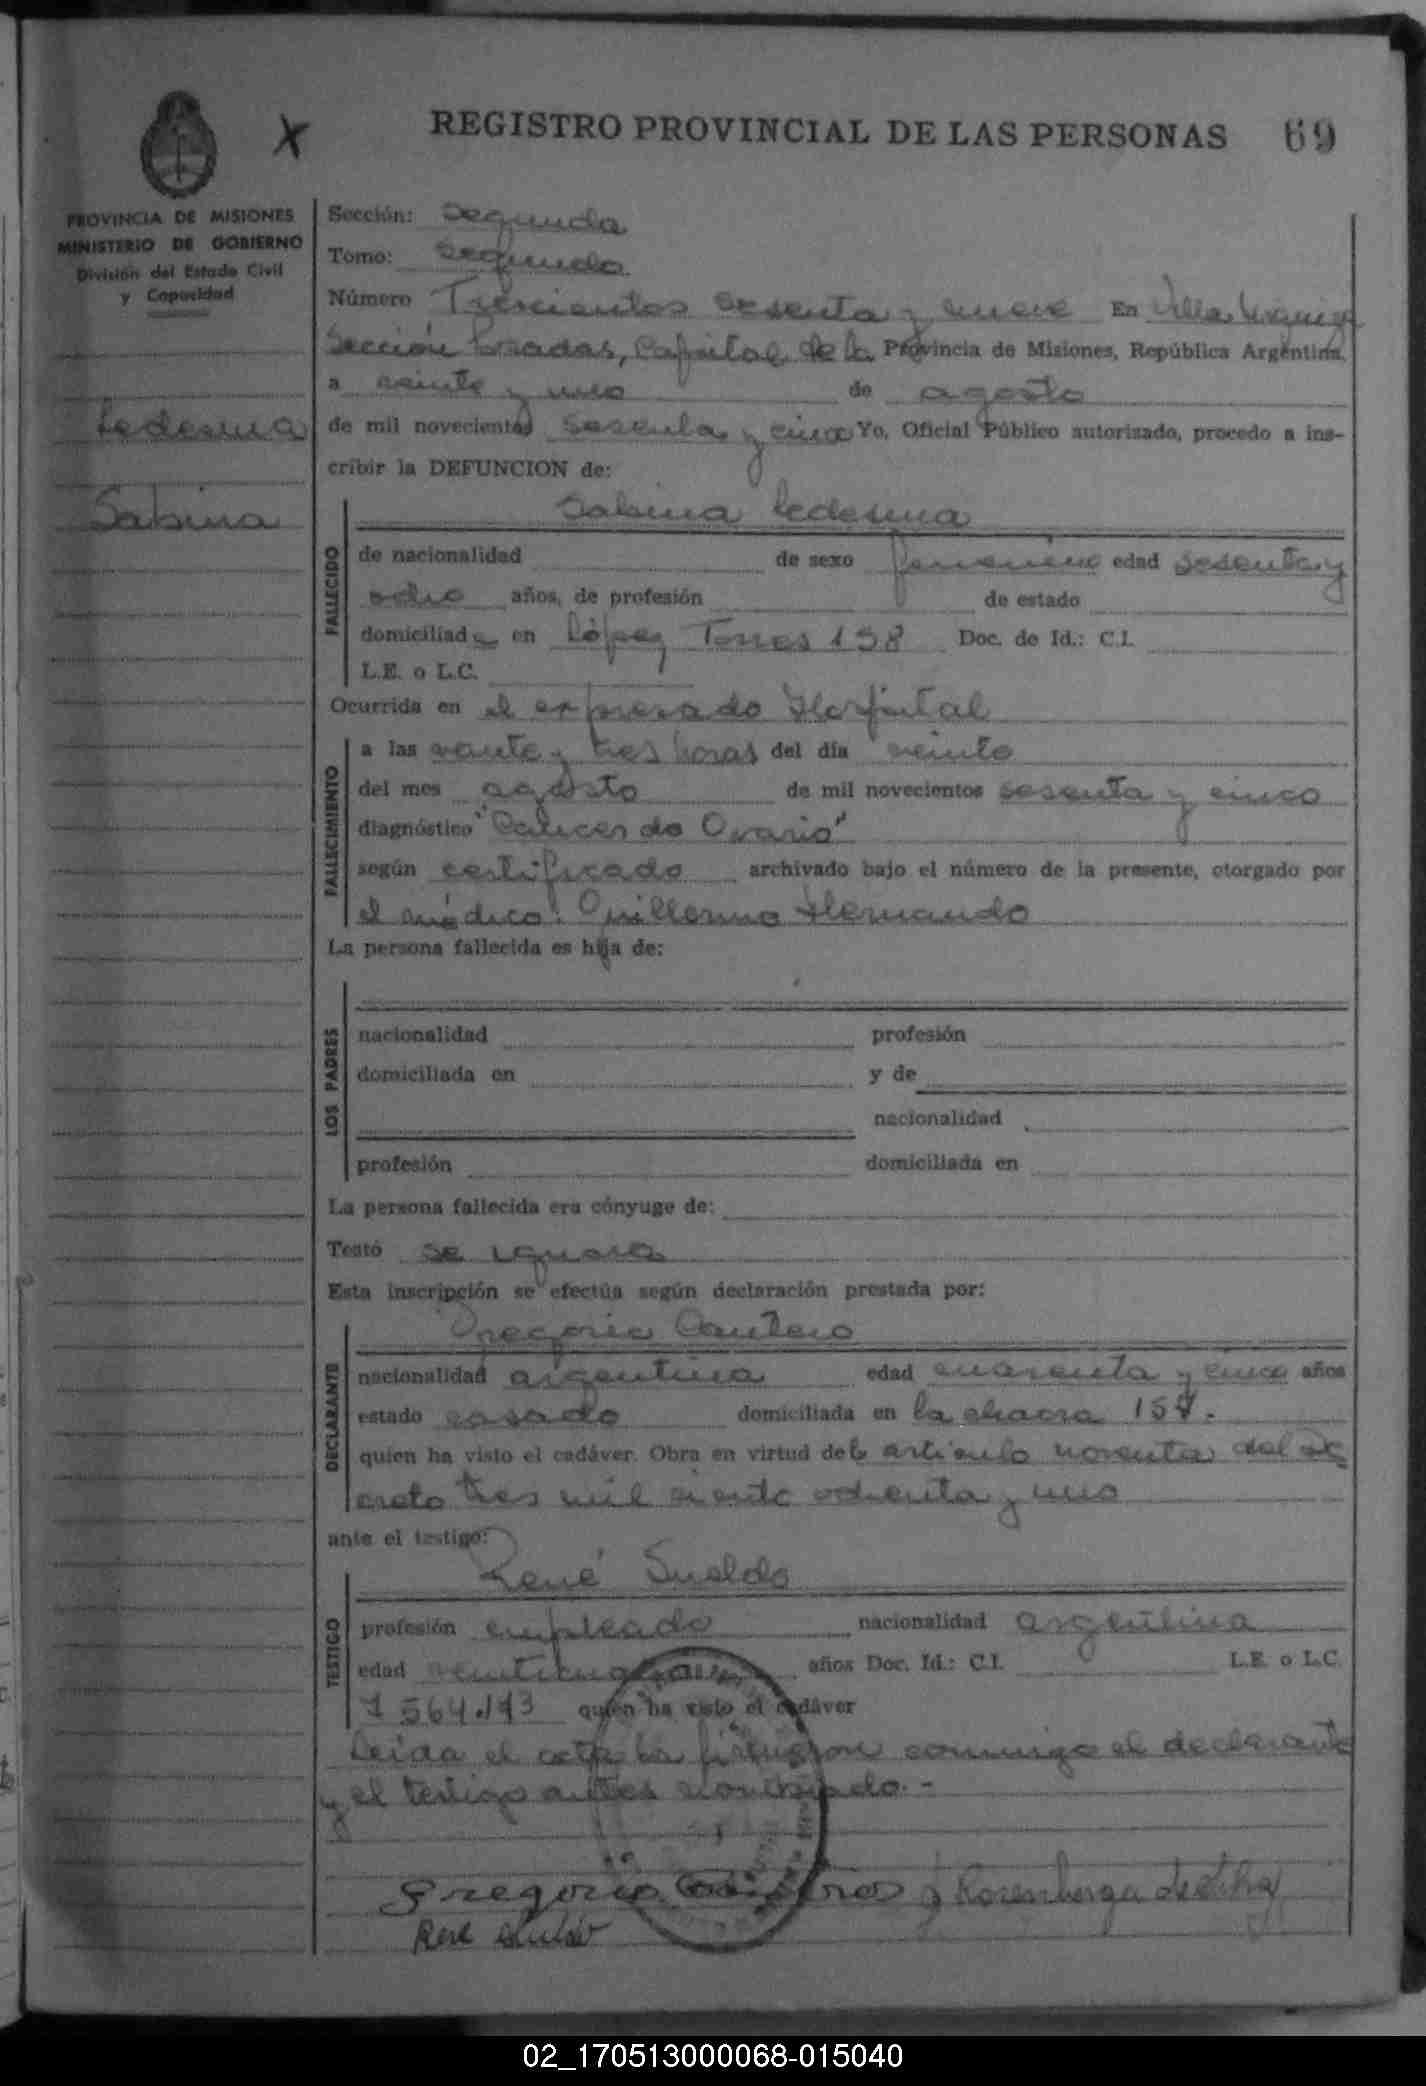 REGISTRO PROVINCIAL DE LAS PERSONAS 69
PROVINCIA DE MISIONES
MINISTERIO DE GOBIERNO
División del Estado Civil
y Capacidad
Ledesma
Sabina
Sección: Segunda
Tomo: Segundo
Número Trescientos sesenta y nueve En Villa Urquiza
Sección Posadas, Capital de la Provincia de Misiones, República Argentina,
a veinte y uno de agosto
de mil novecientos sesenta y cinco Yo, Oficial Público autorizado, procedo a ins-
cribir la DEFUNCION de:
Sabina Ledesma
FALLECIDO
de nacionalidad de sexo femenino edad sesenta y
ocho años, de profesión de estado
domiciliada en López Torres 198 Doc. de Id.: C.I.
L.E. o L.C.
Ocurrida en el expresado Hospital
FALLECIMIENTO
a las veinte y tres horas del día veinte
del mes agosto de mil novecientos sesenta y cinco
diagnóstico "Cancer de Ovario"
según certificado archivado bajo el número de la presente, otorgado por
el médico: Guillermo Hernando
La persona fallecida es hija de:
LOS PADRES
nacionalidad profesión
domiciliada en y de
nacionalidad
profesión domiciliada en
La persona fallecida era cónyuge de:
Testó se ignora
Esta inscripción se efectúa según declaración prestada por:
Gregorio Cantero
DECLARANTE
nacionalidad argentina edad cuarenta y cinco años
estado casado domiciliada en la chacra 157.
quien ha visto el cadáver. Obra en virtud del artículo noventa del de
creto tres mil ciento ochenta y uno
ante el testigo:
René Sueldo
TESTIGO
profesión empleado nacionalidad argentina
edad años Doc. Id.: C.I. L.E. o L.C.
7564.193 quien ha visto el cadáver
Leída el acta la firmaron conmigo el declarante
y el testigo antes nombrado.-
Gregorio Cantero
René Sueldo
02_170513000068-015040